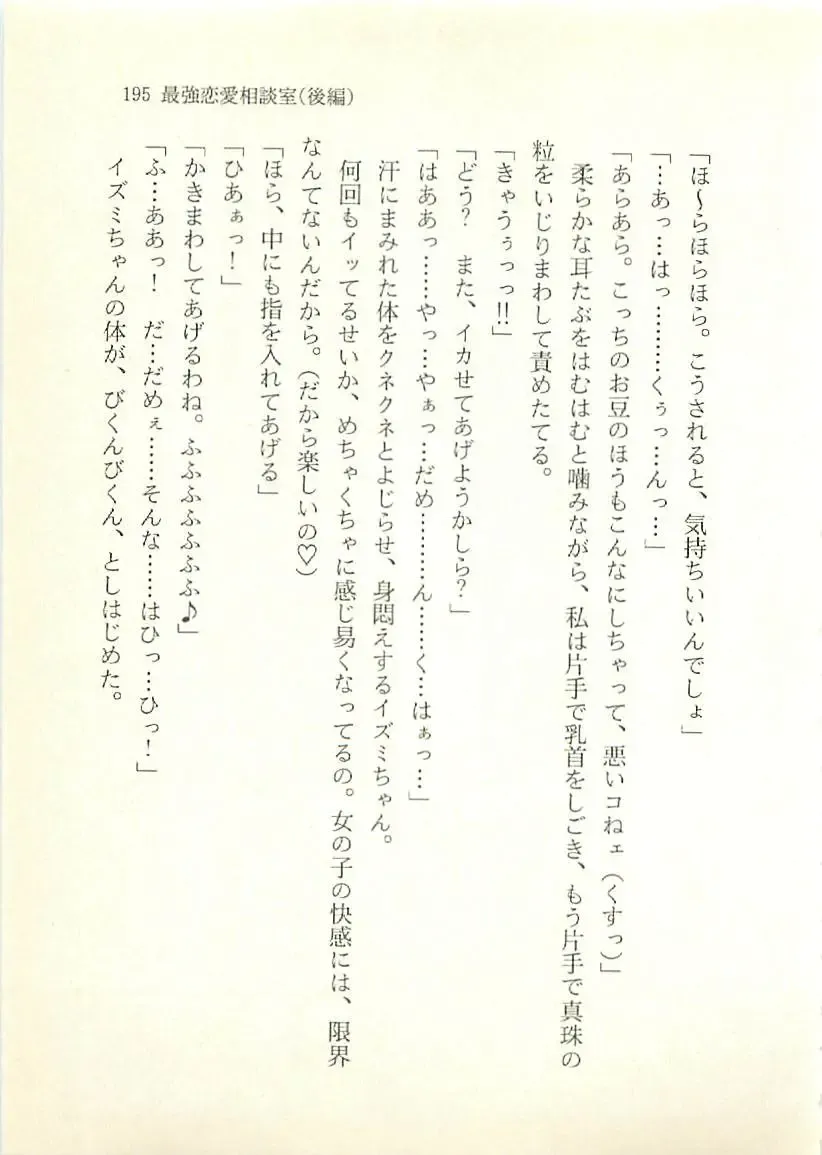 195 最強恋愛相談室(後編)
「ほ〜らほらほら。こうされると、気持ちいいんでしょ」
「…あっ…はっ………くぅっ…んっ…」
「あらあら。こっちのお豆のほうもこんなにしちゃって、悪いコねェ(くすっ)」
柔らかな耳たぶをはむはむと噛みながら、私は片手で乳首をしごき、もう片手で真珠の
粒をいじりまわして責めたてる。
「きゃうぅっっ!!」
「どう? また、イカせてあげようかしら?」
「はああっ……やっ…やぁっ…だめ………ん……く…はぁっ…」
汗にまみれた体をクネクネとよじらせ、身悶えするイズミちゃん。
何回もイッてるせいか、めちゃくちゃに感じ易くなってるの。女の子の快感には、限界
なんてないんだから。(だから楽しいの♡)
「ほら、中にも指を入れてあげる」
「ひあぁっ!」
「かきまわしてあげるわね。ふふふふふふふ♪」
「ふ…ああっ! だ…だめぇ……そんな……はひっ…ひっ!」
イズミちゃんの体が、びくんびくん、としはじめた。